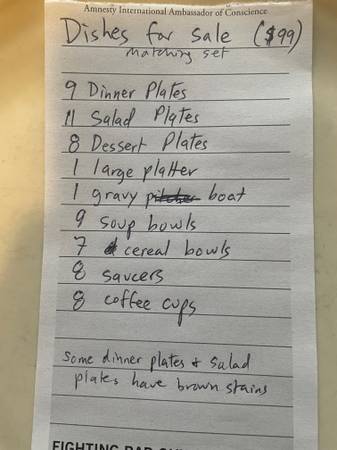 Amnesty International Ambassador of Conscience
Dishes for Sale ($99)
matching set
9 Dinner Plates
11 Salad Plates
8 Dessert Plates
1 large platter
1 gravy boat
9 soup bowls
7 cereal bowls
8 saucers
8 coffee cups
some dinner plates + salad
plates have brown stains
FIGHTING